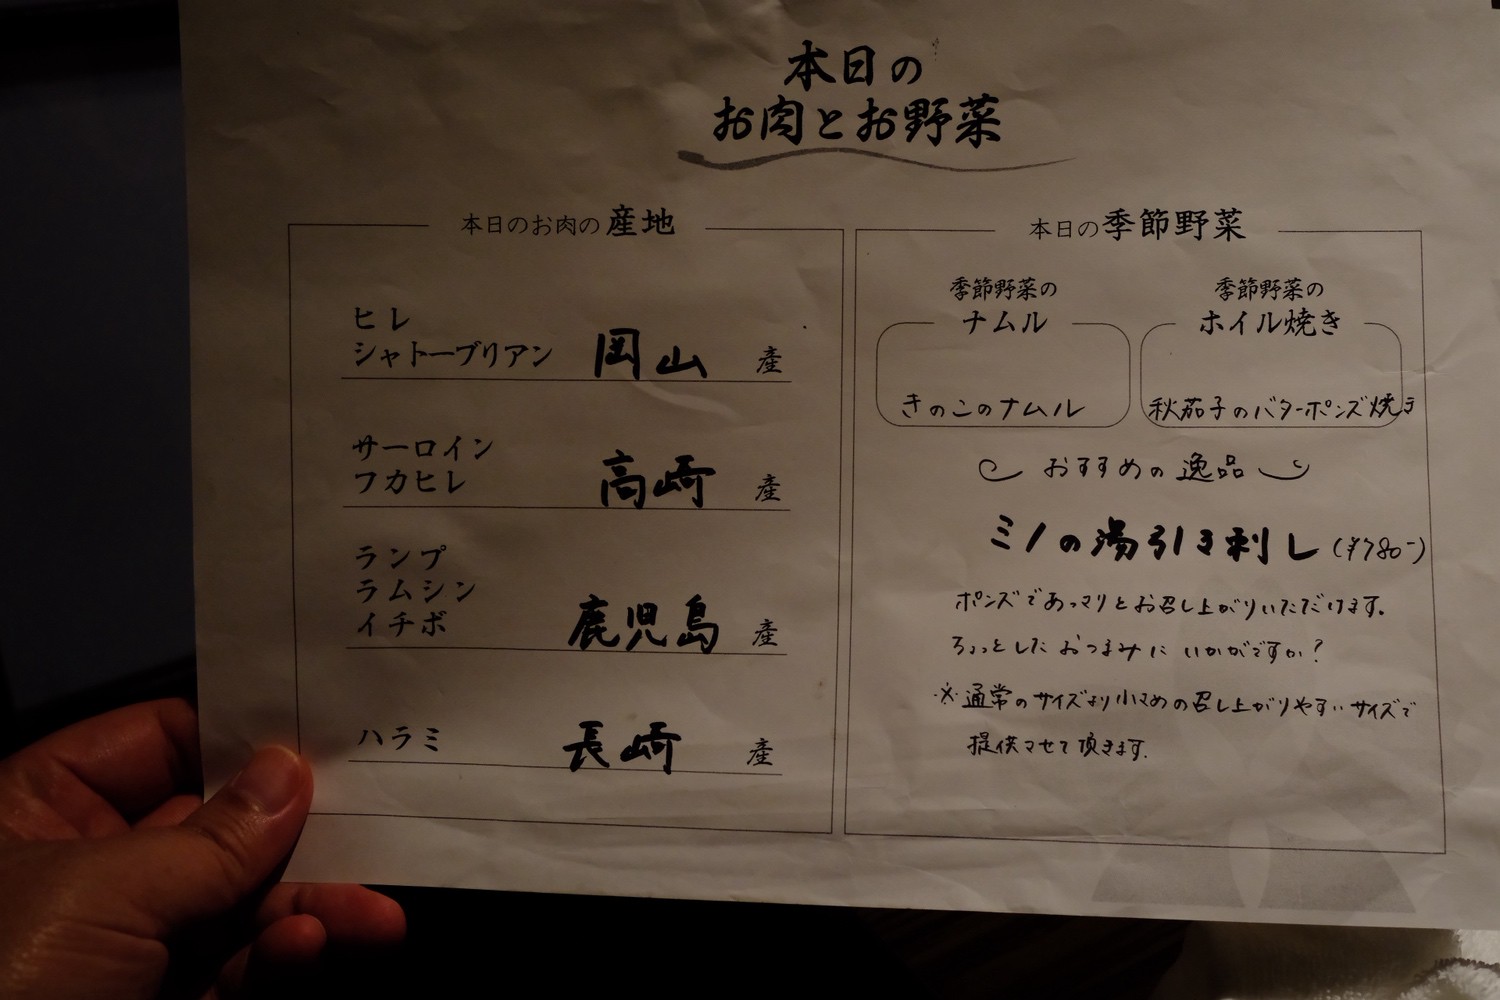 本日の
お肉とお野菜
本日のお肉の産地
ヒレ
シャトーブリアン 岡山 産
サーロイン
フカヒレ 高崎 産
ランプ
ラムシン
イチボ 鹿児島 産
ハラミ 長崎 産
本日の季節野菜
季節野菜の
ナムル
きのこのナムル
季節野菜の
ホイル焼き
秋茄子のバターポンズ焼き
おすすめの逸品
ミノの湯引き刺し (¥780-)
ポンズであっさりとお召し上がりいただけます。
ちょっとしたおつまみにいかがですか?
※通常のサイズより小さめの召し上がりやすいサイズで
提供させて頂きます。